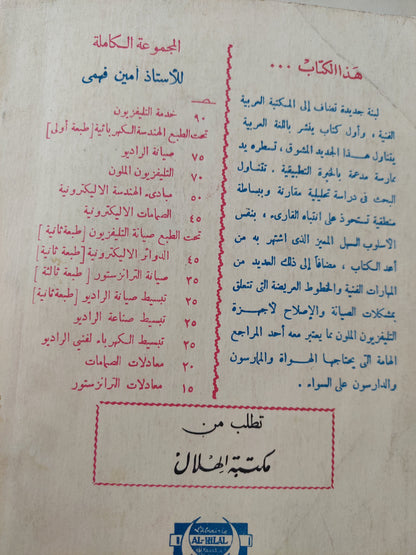 هَذا الكتابْ ...
لبنة جديدة تضاف إلى المكتبة العربية
الفنية ، وأول كتاب ينشر باللغة العربية
يتناول هذا الجديد المشوق ، تسطره يد
ممارسة مدعمة بالخبرة التطبيقية . تتناول
البحث فى دراسة تحليلية مقارنة وببساطة
منطقية تستحوذ على انتباه القارىء ، بنفس
الاسلوب السهل المميز الذى اشتهر به من
أعد الكتاب ، مضافاً إلى ذلك العديد من
المهارات الفنية والخطوط العريضة التى تتعلق
بمشكلات الصيانة والإصلاح لأجهزة
التليفزيون الملون مما يعتبر معه أحد المراجع
الهامة التى يحتاجها الهواة والممارسون
والدارسون على السواء .
المجموعة الكاملة
للأستاذ أمين فهمى
٩٠ خدمة التليفزيون
تحت الطبع الهندسة الكهربائية [ طبعة أولى ]
٧٥ صيانة الراديو
٧٠ التليفزيون الملون
٥٠ مبادىء الهندسة الاليكترونية
٤٥ الصمامات الاليكترونية
تحت الطبع صيانة التليفزيون [ طبعة ثانية ]
٤٥ الدوائر الاليكترونية [ طبعة ثانية ]
٣٥ صيانة الترانزستور [ طبعة ثالثة ]
٢٥ تبسيط صيانة الراديو [ طبعة ثانية ]
٢٥ تبسيط صناعة الراديو
٢٥ تبسيط الكهرباء لفنيى الراديو
٢٠ معادلات الصمامات
١٥ معادلات الترانزستور
تطلب من
مكتبة الهلال
AL-HILAL